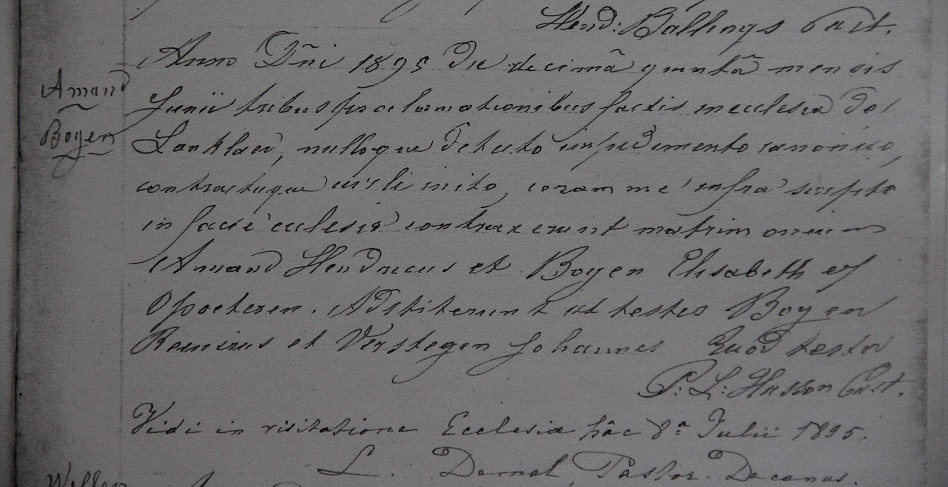 Hend: Ballings Cust.
Anno Dñi 1895 die decimâ quintâ mensis
Amand
Boyen
Junii tribus proclamationibus factis in ecclesia de
Lanklaer, nulloque detecto impedimento canonico,
contractuque civili inito, coram me infra scripto
in facie ecclesiæ contraxerunt matrimonium
Amand Hendricus et Boyen Elisabeth ex
Opoeteren. Adstiterunt ut testes Boyen
Reinirus et Verstegen Johannes Quod testor
P: L: Husson Cust.
Vidi in visitatione Ecclesiæ hâc 8ª Julii 1895.
L. Pastor Decanus.
Willen